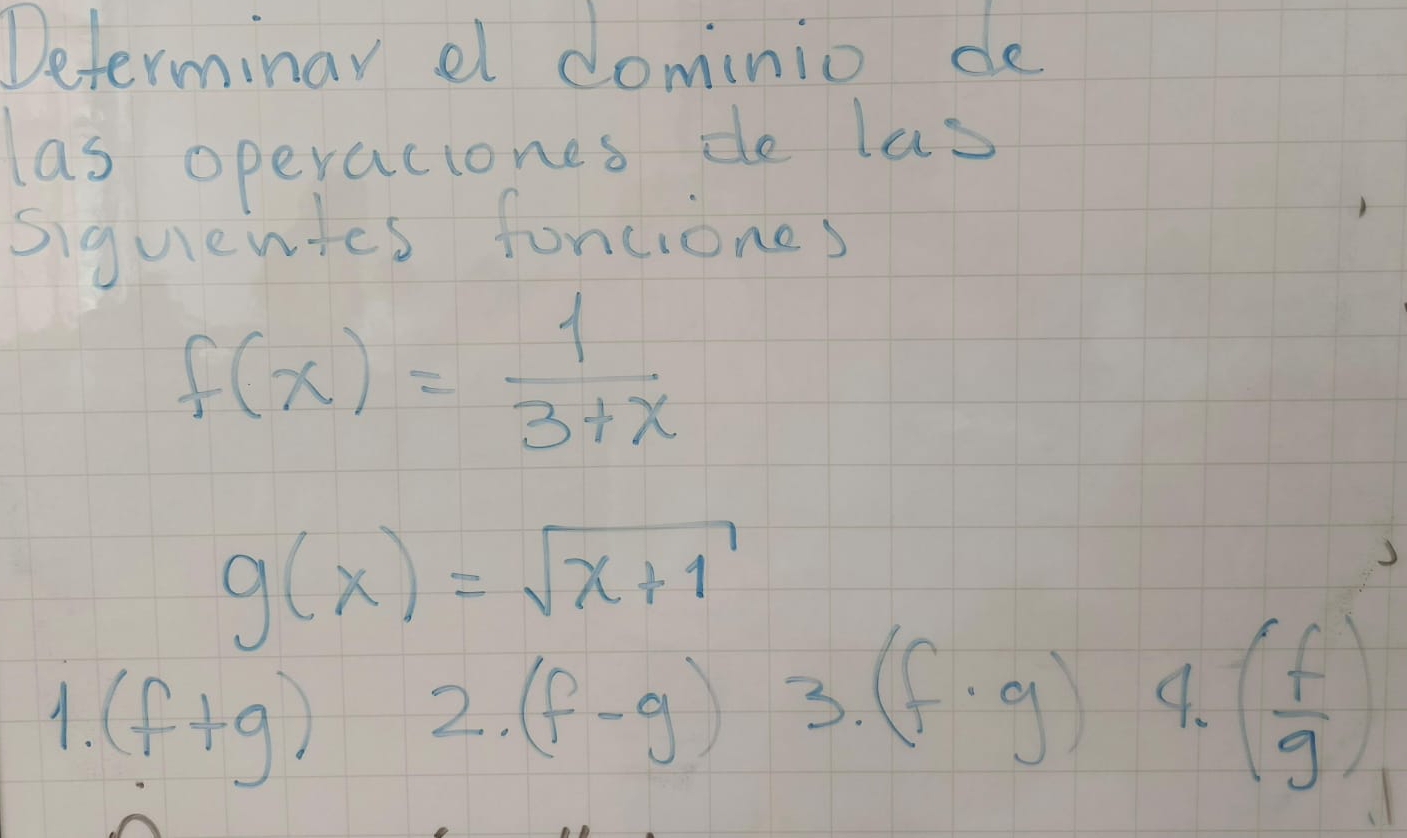 Determinar el dominio de
las operaciones de las
siguientes funciones
f(x) = 1/(3+x)
g(x) = √(x+1)
1.(f+g) 2.(f-g) 3.(f·g) 4.(f/g)